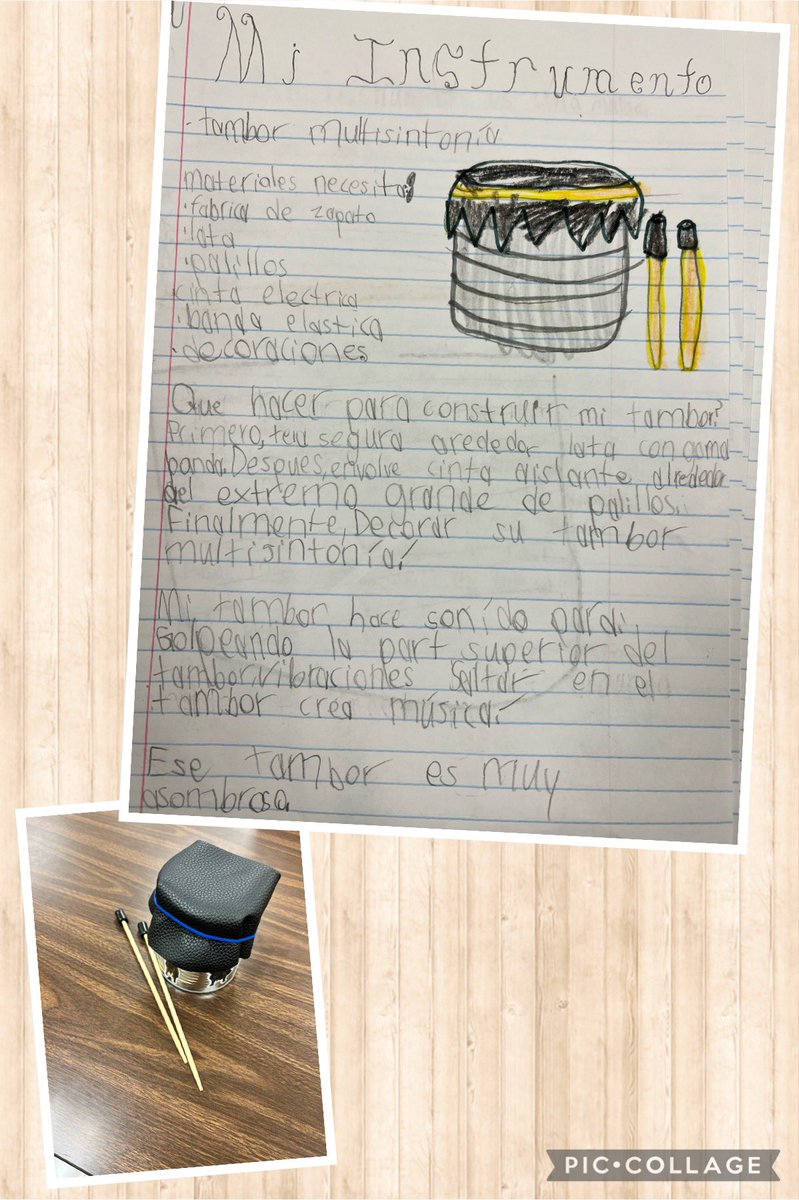 Mi Instrumento
·tambor multisintonía
materiales necesito
·fabrica de zapato
·lata
·palillos
·cinta electrica
·banda elastica
·decoraciones
Que hacer para construir mi tambor?
Primero, segura arededor lata con goma
banda. Despues, envolve cinta aislante alrededor
del extremo grande de palillos.
Finalmente, Decorar su tambor
multisintonía!
Mi tambor hace sonído
Golpeando la part superior del
tambor. Vibraciones Saltar en el
tambor crea música!
Ese tambor es muy
asombrosa
PIC•COLLAGE